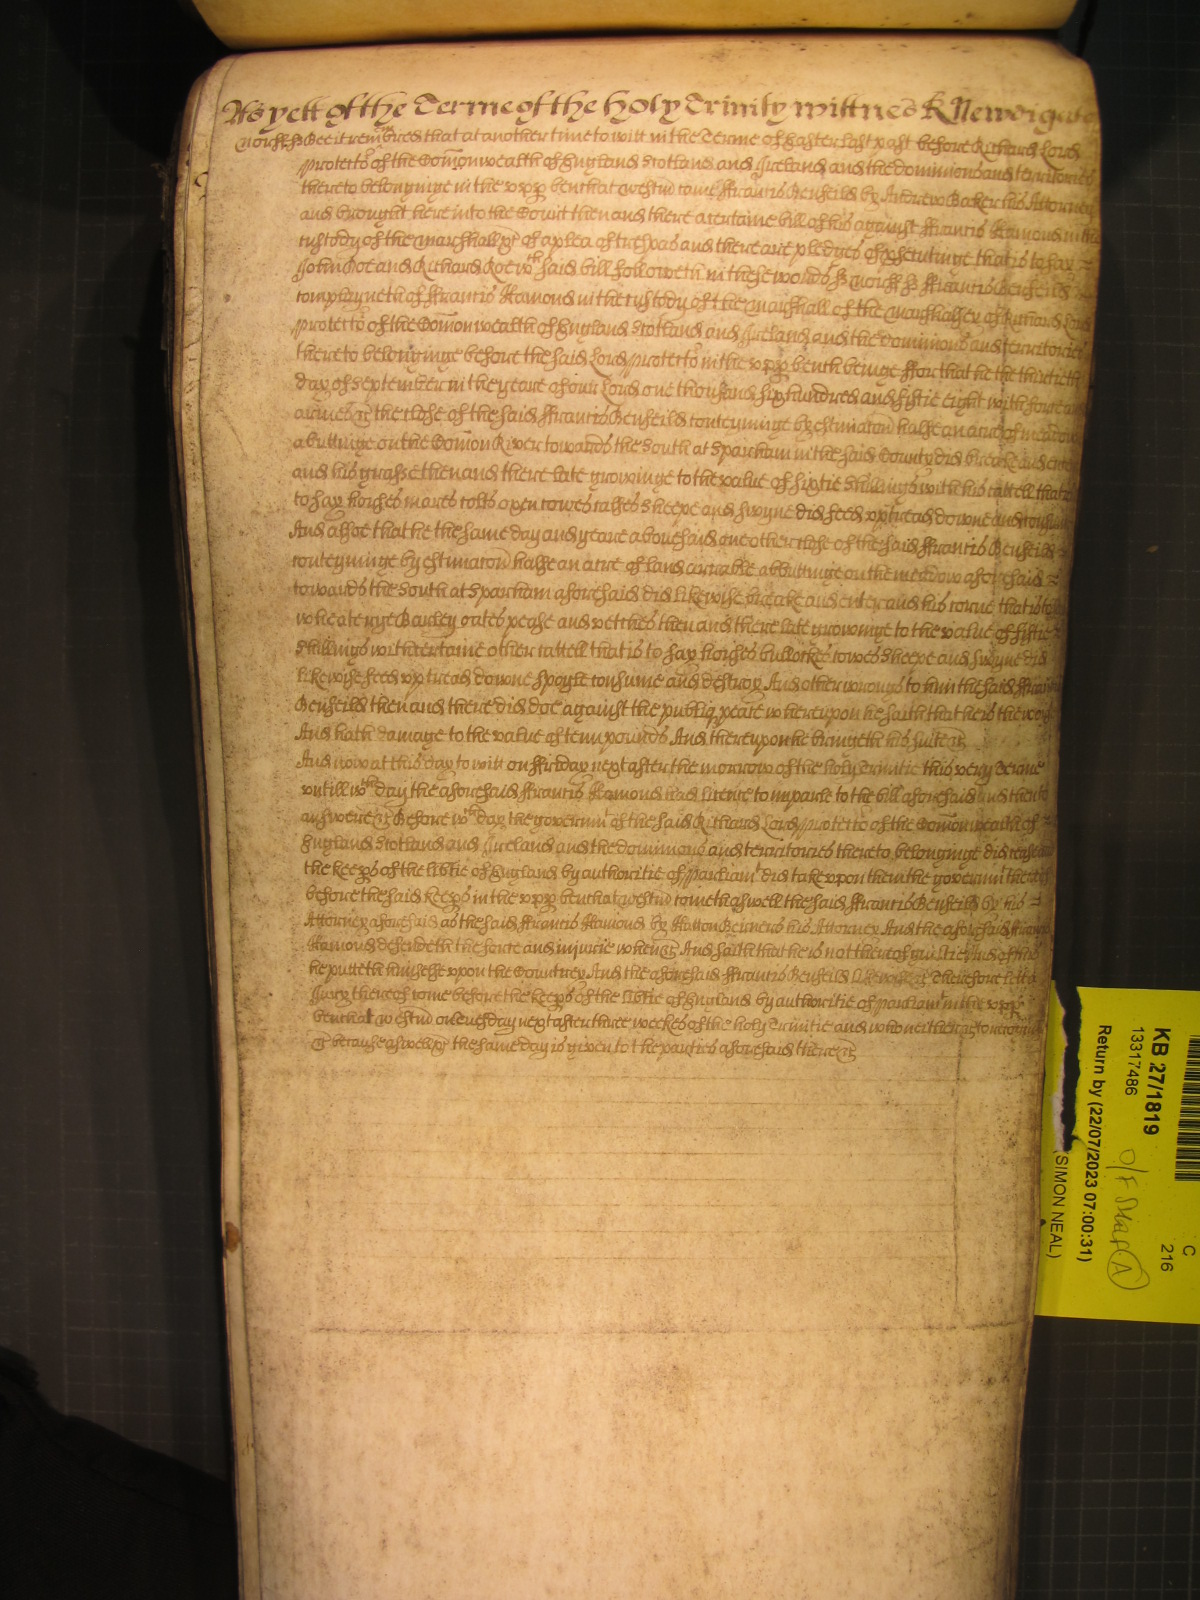 As yett of the Terme of the holy Trinity wittnes R Newdigate
Norff ss Bee it remembred that at another time to witt in the Terme of Easter last past before Richard Lord
Protector of the Comonwealth of England Scotland and Ireland and the dominions and territories
thereto belonginge in the upp bench at Westm came Ffrancis Benfeild by Andrew Baker his Attorney
and brought here into the Court then and there a certaine bill of his against Ffrancis Ramond in the
custody of the marshall &c of a plea of trespas and there are pledges of prosecutinge that is to say
John Doe and Richard Roe wch said bill followeth in these words ss Norff ss Ffrancis Benfeild
complayneth of Ffrancis Ramond in the custody of the marshall of the marshalsey of Richard Lord
Protector of the Comonwealth of England Scotland and Ireland and the dominions and territories
thereto belonginge before the said Lord Protector in the upp bench beinge Ffor that he the thirtieth
day of September in the yeare of our Lord one thousand six hundred and fiftie eight with force and
armes &c the close of the said Ffrancis Benfeild conteyninge by estimacon halfe an acre of meadow
abuttinge on the Comon River towards the south at Sparham in the said County did breake and enter
and his grasse then and there late growinge to the value of sixtie shillings with his cattell that is
to say horses mares colts oxen cowes calves sheepe and swyne did feed upp tread downe and consume
And alsoe that he the same day and yeare abovesaid one other close of the said Ffrancis Benfeild
conteyninge by estimacon halfe an acre of land arrable abbuttinge on the meadow aforesaid
towards the south at Sparham aforesaid did likewise breake and enter and his corne that is to say
wheate rye Barley oates pease and vetches then and there late growinge to the value of fiftie
shillings with certaine other cattell that is to say horses bullockes cowes sheepe and swyne did
likewise feed upp tread downe spoyle consume and destroy And other wrongs to him the said Ffrancis
Benfeild then and there did doe against the publiq peace whereupon he saith that he is the worse
And hath damage to the value of tenn pounds And thereupon he bringeth his suite &c
And now at this day to witt on Ffriday next after the morrow of the holy Trinitie this very Terme
untill wch day the aforesaid Ffrancis Ramond had licence to imparle to the bill aforesaid and then to
answere &c Before wch day the governmt of the said Richard Lord Protector of the Comonwealth of
England Scotland and Ireland and the dominions and territories thereto belonginge did cease and
the keepers of the libtie of England by authoritie of Parliamt did take upon them the governmt thereof
before the said keeps in the upp bench at Westm cometh aswell the said Ffrancis Benfeild by his
Attorney aforesaid as the said Ffrancis Ramond by his Attorney And the aforesaid Ffrancis
Ramond defendeth the force and injurie when &c And saith that he is not thereof guiltie And of this
he putteth himselfe upon the Countrey And the aforesaid Ffrancis Benfeild likewise &c Therefore lett a
Jury thereof come before the keeps of the libtie of England by authoritie of Parliamt in the upp
bench at Westm on day next after three weekes of the holy Trinitie and who neither &c to recognize
&c because aswell &c the same day is given to the parties aforesaid there &c
KB 27/1819
13317486
Return by (22/07/2023 07:00:31)
SIMON NEAL)
C
216
O/F
A